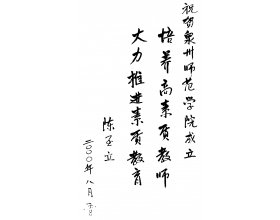 祝贺泉州师范学院成立
培养高素质教师
大力推进素质教育
陈至立
二〇〇〇年八月